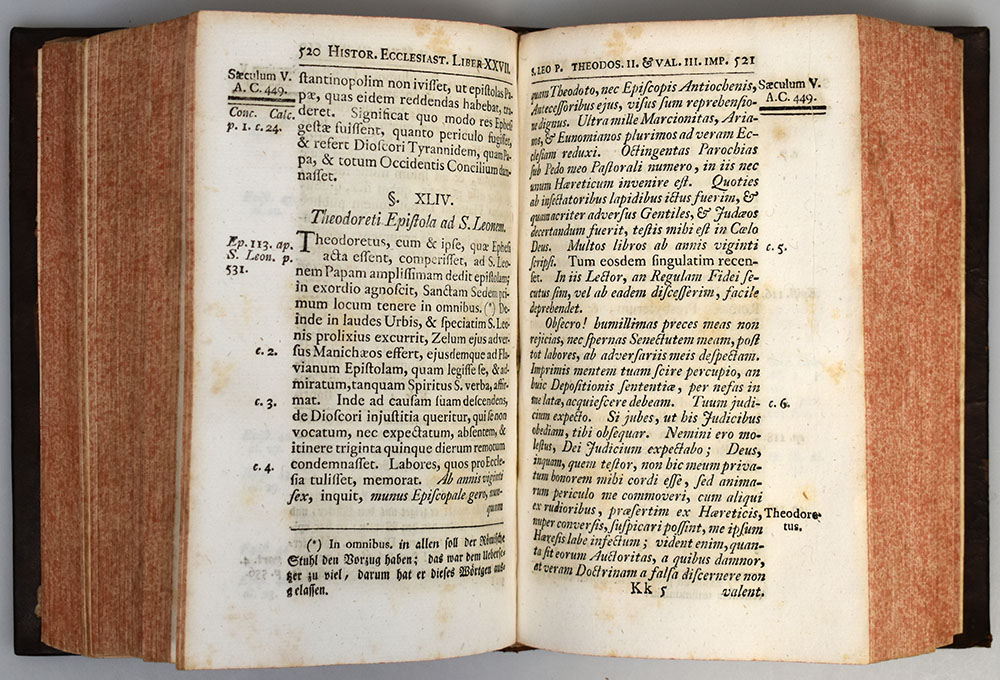 520 HISTOR. ECCLESIAST. LIBER XXVII.
Sæculum V.
A. C. 449.
Conc. Calc.
p. 1. c. 24.
ſtantinopolim non iviſſet, ut epiſtolas Pa-
pæ, quas eidem reddendas habebat, tra-
deret. Significat quo modo res Epheſi
geſtæ fuiſſent, quanto periculo fugiſſet,
& refert Dioſcori Tyrannidem, quam Pa-
pa, & totum Occidentis Concilium dam-
naſſet.
§. XLIV.
Theodoreti Epiſtola ad S. Leonem.
Ep. 113. ap.
S. Leon. p.
531.
Theodoretus, cum & ipſe, quæ Epheſi
acta eſſent, comperiſſet, ad S. Leo-
nem Papam ampliſſimam dedit epiſtolam;
in exordio agnoſcit, Sanctam Sedem pri-
mum locum tenere in omnibus. (*) De-
inde in laudes Urbis, & ſpeciatim S. Leo-
nis prolixius excurrit, Zelum ejus adver-
c. 2.
ſus Manichæos effert, ejusdemque ad Fla-
vianum Epiſtolam, quam legiſſe ſe, & ad-
miratum, tanquam Spiritus S. verba, affir-
c. 3.
mat. Inde ad cauſam ſuam deſcendens,
de Dioſcori injuſtitia queritur, qui ſe non
vocatum, nec expectatum, abſentem, &
itinere triginta quinque dierum remotum
c. 4.
condemnaſſet. Labores, quos pro Eccle-
ſia tuliſſet, memorat. Ab annis viginti
ſex, inquit, munus Epiſcopale gero, nun-
quam
(*) In omnibus. in allen ſoll der Römiſche
Stuhl den Vorzug haben; das war dem Ueberſe-
tzer zu viel, darum hat er dieſes Wörtgen aus-
gelaſſen.
S. LEO P. THEODOS. II. & VAL. III. IMP. 521
Sæculum V.
A. C. 449.
quam Theodoto, nec Epiſcopis Antiochenis,
Anteceſſoribus ejus, viſus ſum reprehenſio-
ne dignus. Ultra mille Marcionitas, Aria-
nos, & Eunomianos plurimos ad veram Ec-
cleſiam reduxi. Octingentas Parochias
ſub Pedo meo Paſtorali numero, in iis nec
unum Hæreticum invenire eſt. Quoties
ab inſectatoribus lapidibus ictus fuerim, &
quam acriter adverſus Gentiles, & Judæos
decertandum fuerit, teſtis mihi eſt in Cœlo
Deus. Multos libros ab annis viginti
c. 5.
ſcripſi. Tum eosdem ſingulatim recen-
ſet. In iis Lector, an Regulam Fidei ſe-
cutus ſim, vel ab eadem diſceſſerim, facile
deprehendet.
Obſecro! humillimas preces meas non
rejicias, nec ſpernas Senectutem meam, poſt
tot labores, ab adverſariis meis deſpectam.
Imprimis mentem tuam ſcire percupio, an
huic Depoſitionis ſententiæ, per nefas in
me latæ, acquieſcere debeam. Tuum judi-
c. 6.
cium expecto. Si jubes, ut his Judicibus
obediam, tibi obſequar. Nemini ero mo-
leſtus, Dei Judicium expectabo; Deus,
inquam, quem teſtor, non hic meum priva-
tum honorem mihi cordi eſſe, ſed anima-
rum periculo me commoveri, cum aliqui
ex rudioribus, præſertim ex Hæreticis,
Theodore-
tus.
nuper converſis, ſuſpicari poſſint, me ipſum
Hæreſis labe infectum; vident enim, quan-
ta ſit eorum Auctoritas, a quibus damnor,
at veram Doctrinam a falſa diſcernere non
Kk 5 valent.